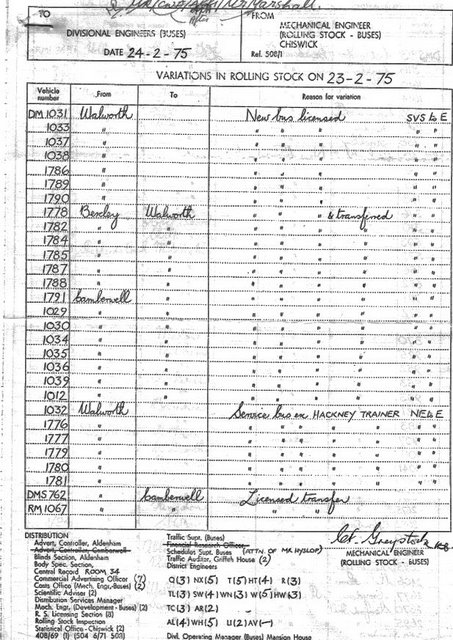 TO
DIVISIONAL ENGINEERS (BUSES)
DATE 24-2-75
FROM
MECHANICAL ENGINEER
(ROLLING STOCK - BUSES)
CHISWICK
Ref. 508/1
VARIATIONS IN ROLLING STOCK ON 23-2-75
Vehicle number From To Reason for variation
DM 1031 Walworth New bus licensed SVS to E
1033 " " " " " "
1037 " " " " " "
1038 " " " " " "
1786 " " " " " "
1789 " " " " " "
1790 " " " " " "
1778 Bexley Walworth " " " & transferred " "
1782 " " " " " " " "
1784 " " " " " " " "
1785 " " " " " " " "
1787 " " " " " " " "
1788 " " " " " " " "
1791 Camberwell " " " " " " "
1029 " " " " " " " "
1030 " " " " " " " "
1034 " " " " " " " "
1035 " " " " " " " "
1036 " " " " " " " "
1039 " " " " " " " "
1012 " " " " " " " "
1032 Walworth Service bus ex HACKNEY TRAINER NE to E
1776 " " " " " " "
1777 " " " " " " "
1779 " " " " " " "
1780 " " " " " " "
1781 " " " " " " "
DMS 762 Camberwell Licensed transfer
RM 1067 " " "
DISTRIBUTION
Advert, Controller, Aldenham
Advert, Controller, Camberwell
Blinds Section, Aldenham
Body Spec, Section,
Central Record ROOM 34
Commercial Advertising Officer
Costs Office (Mech, Engr, Buses) (2)
Scientific Adviser (2)
Distribution Services Manager
Mech. Engr, (Development - Buses) (2)
R. S. Licensing Section (3)
Rolling Stock Inspection
Statistical Office - Chiswick (2)
408/69 (1) (504 6/71 503)
Traffic Supt, (Buses)
Financial Research Officer
Schedules Supt, Buses (ATTN. OF MR HYSLOP)
Traffic Auditor, Griffith House (2)
District Engineers
Q(3) NX(5) T(5) HT(4) R(3)
TL(3) SW(4) WN(3) W(5) HW(3)
TC(3) AR(2)
AL(4) WH(5) U(2) AV(-)
Divl, Operating Manager (Buses) Mansion House
MECHANICAL ENGINEER
(ROLLING STOCK - BUSES)